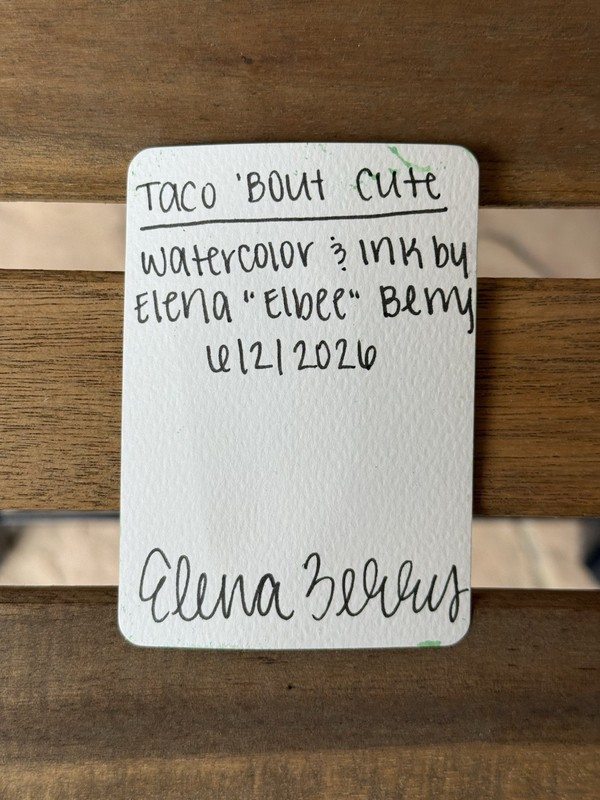 Taco 'Bout Cute
Watercolor & Ink by
Elena "Elbee" Berry
6/2/2026
Elena Berry